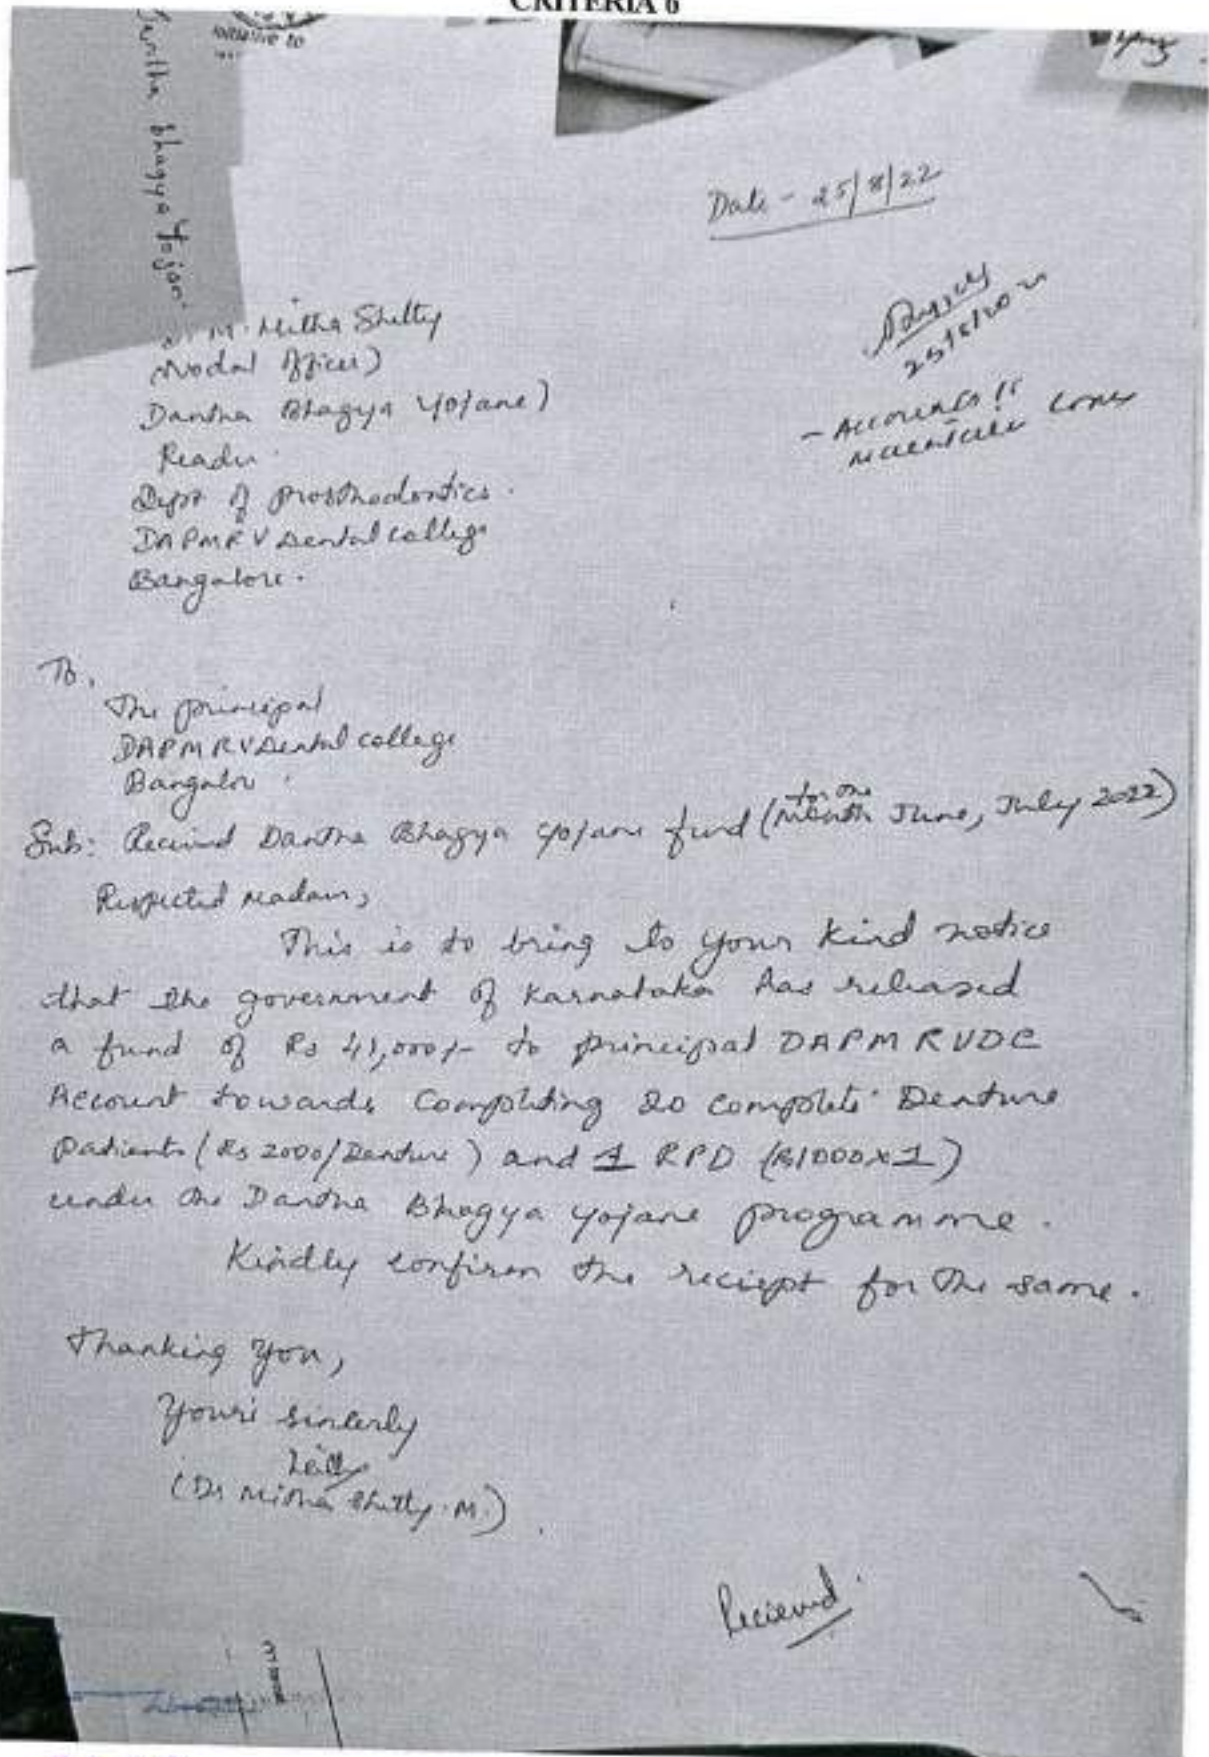 CRITERIA 6
initiative to
Bhagya Yojan
Date - 25/8/22
M. Mitha Shetty
(Nodal Officer)
Dantha Bhagya Yojane)
Reader
Dept of prosthodontics.
DAPMRV Dental college
Bangalore.
- Accounts
To,
The principal
DAPMRV Dental college
Bangalore
Sub: Recieved Dantha Bhagya Yojane fund (for the Month June, July 2022)
Respected madam,
This is to bring to your kind notice
that the government of Karnataka has released
a fund of Rs 41,000/- to principal DAPM RVDC
Account towards Completing 20 complete Denture
patients (Rs 2000/Denture) and 1 RPD (Rs1000x1)
under the Dantha Bhagya Yojane programme.
Kindly confirm the reciept for the same.
Thanking you,
Your's sincerly
(Dr Mitha Shetty. M.)
Recieved.